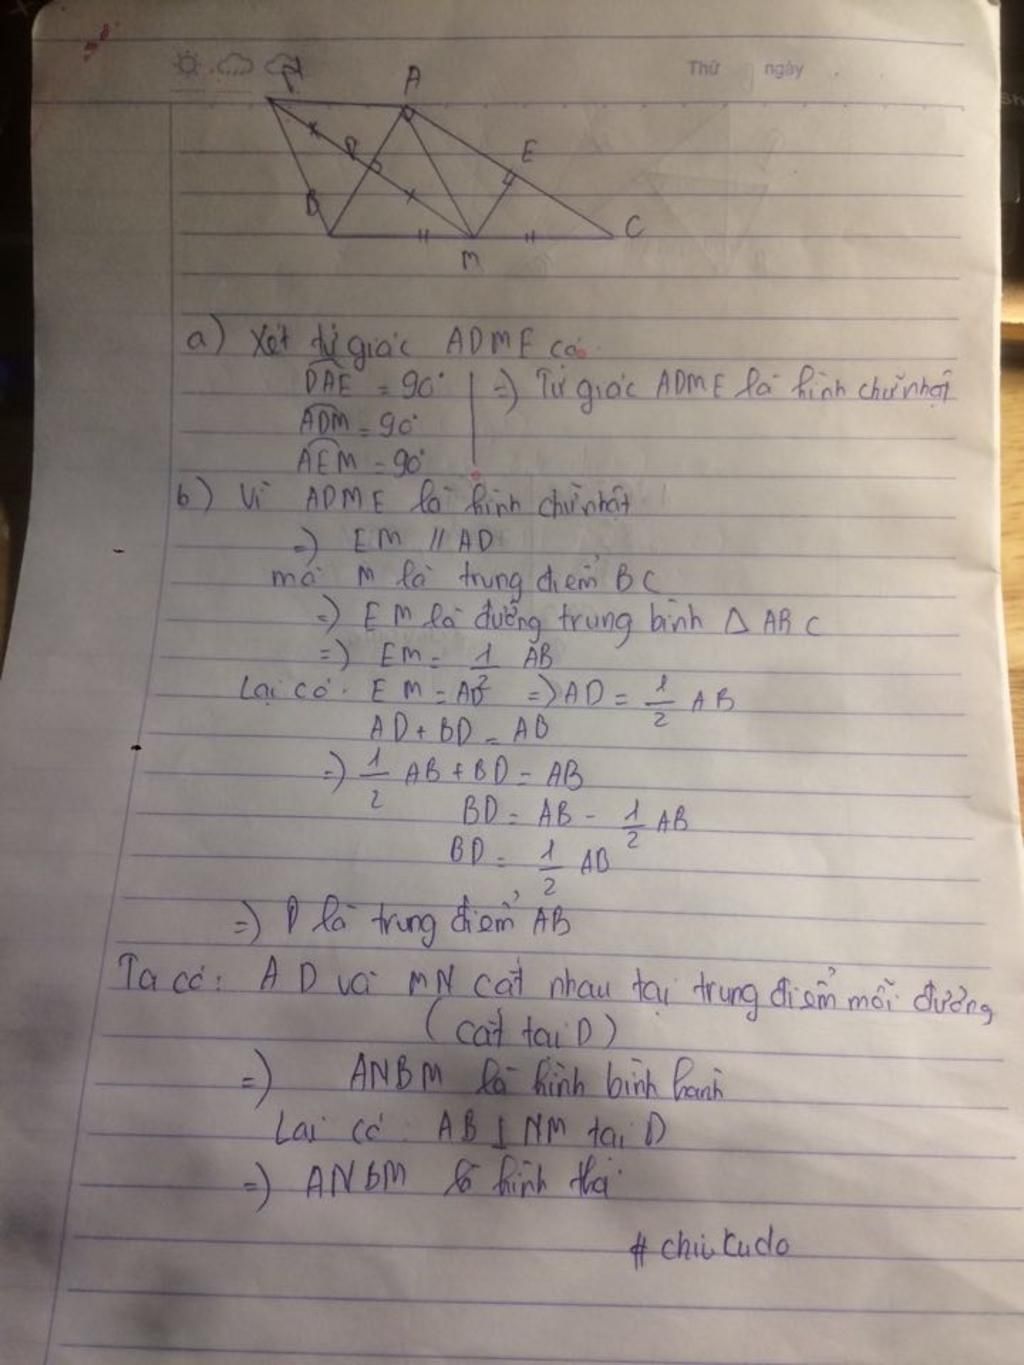 Thứ ngày
A
E
B
C
M
a) Xét tứ giác ADME có
DAE = 90° => Tứ giác ADME là hình chữ nhật
ADM = 90°
AEM = 90°
b) Vì ADME là hình chữ nhật
=) EM // AD
mà M là trung điểm BC
=) EM là đường trung bình Δ ABC
=) EM = 1/2 AB
Lại có: EM = AD =) AD = 1/2 AB
AD + BD = AB
=) 1/2 AB + BD = AB
BD = AB - 1/2 AB
BD = 1/2 AB
=) D là trung điểm AB
Ta có: AD và MN cắt nhau tại trung điểm mỗi đường
(cắt tại D)
=) ANBM là hình bình hành
Lại có: AB ⊥ NM tại D
=) ANBM là hình thoi